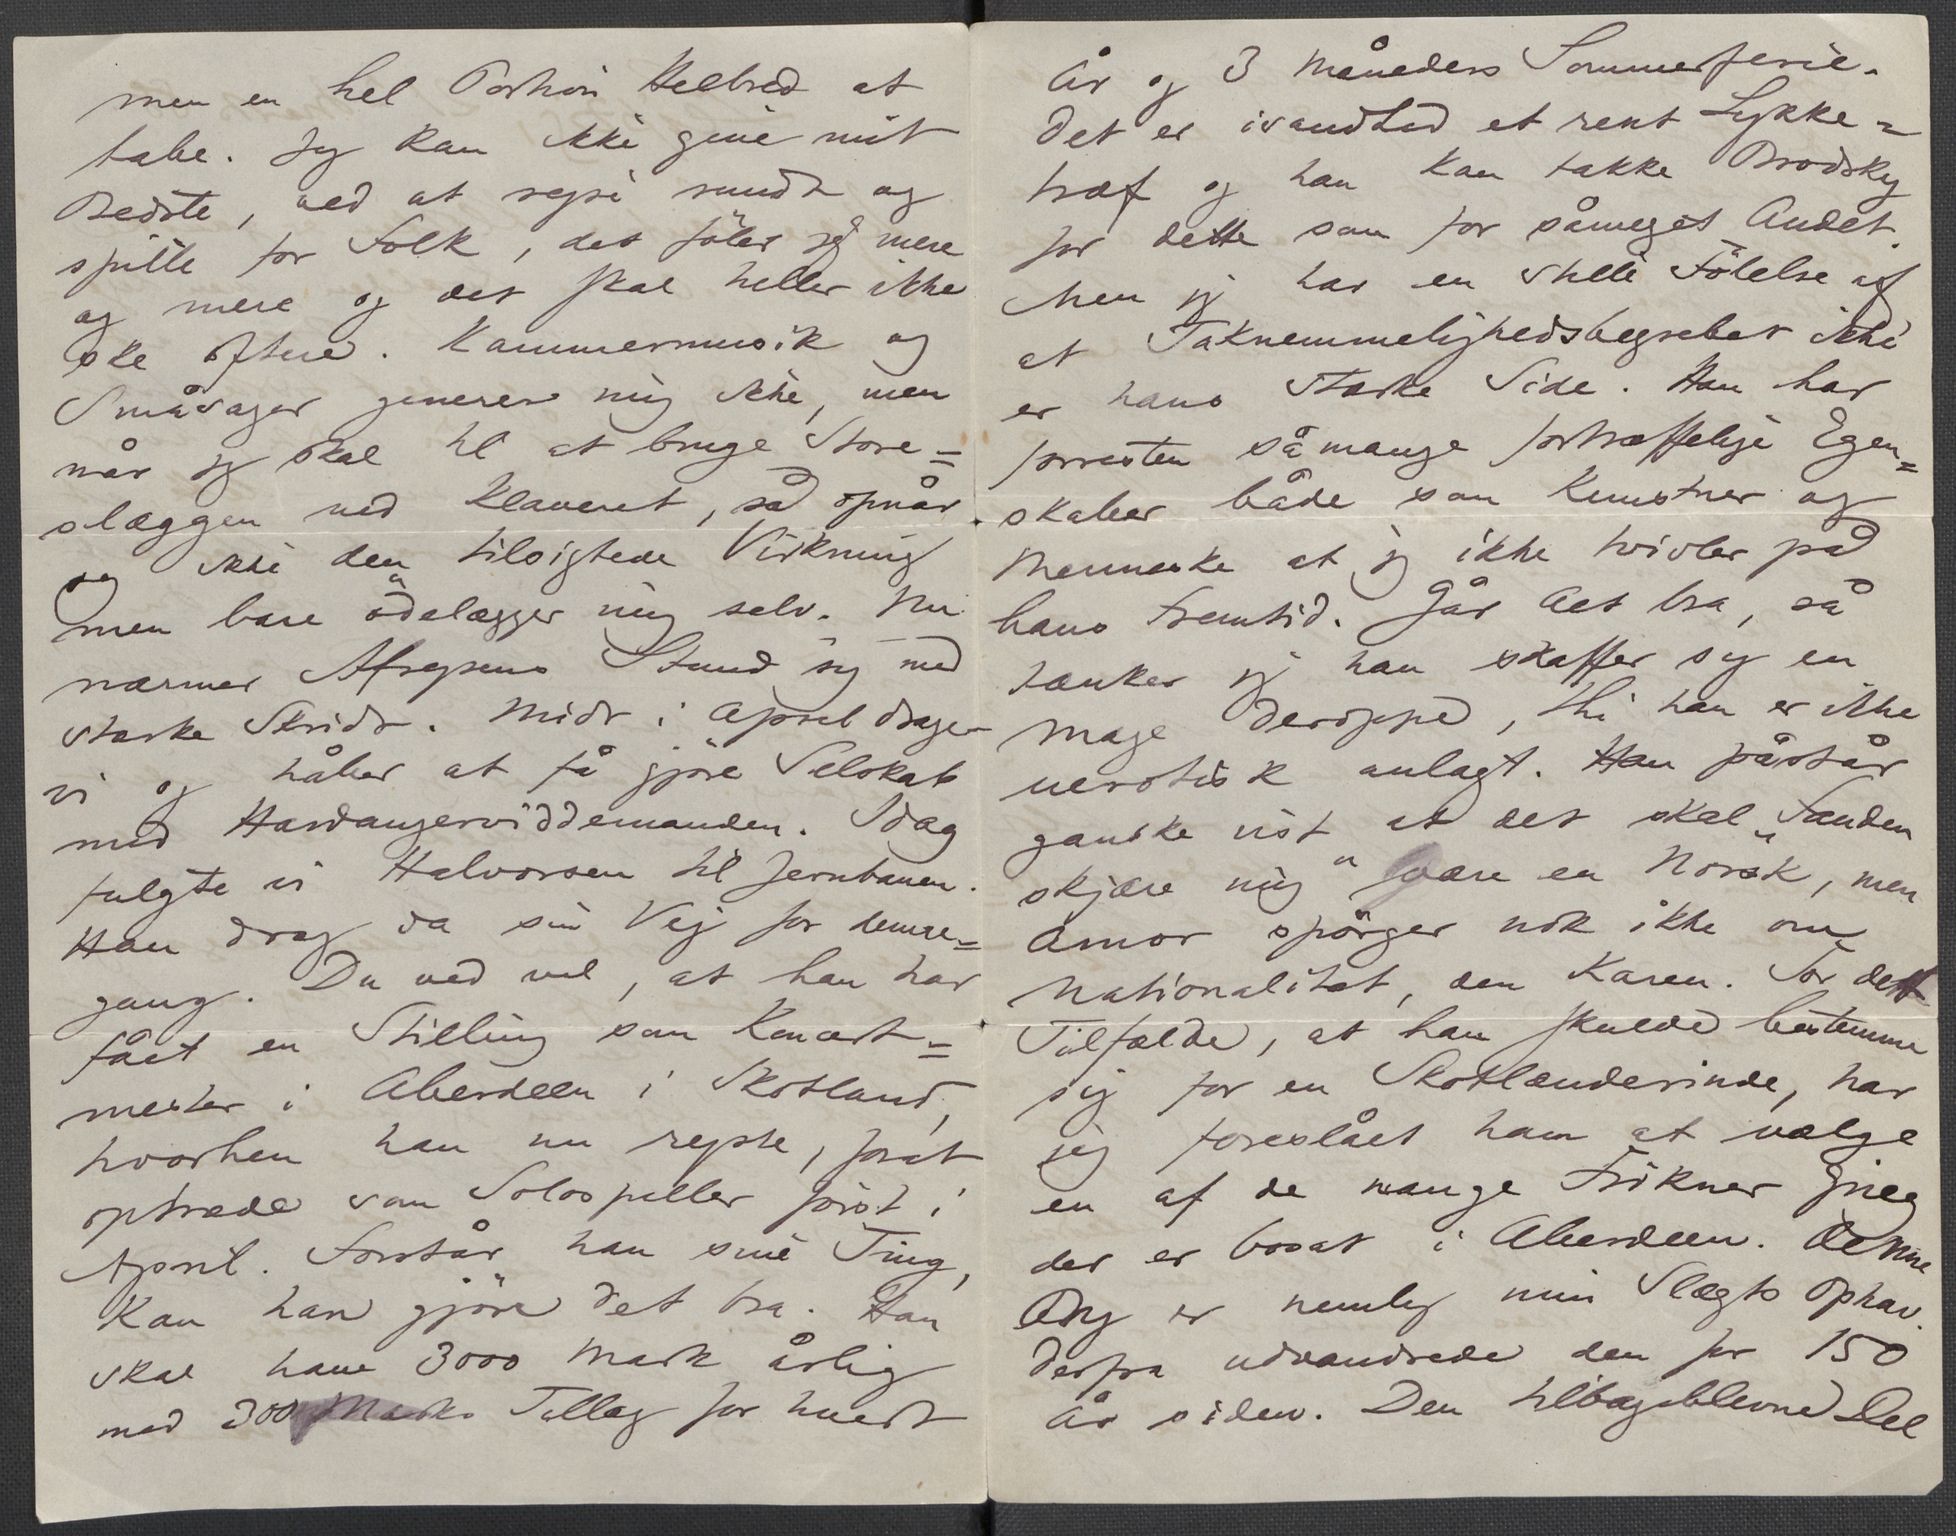 men en hel Portion Helbred at
tabe. Jeg kan ikke give mit
Bedste, ved at rejse rundt og
spille for Folk, det föler jeg mere
og mere og det skal heller ikke
ske oftere. Kammermusik og
Småsager generer mig ikke, men
når jeg skal til at bruge Store=
slæggen ved Klaveret, så opnår
jeg ikke den tilsigtede Virkning
men bare ödelægger mig selv. Nu
nærmer Afrejsens Stund sig med
stærke Skridt. Midt i April drager
vi og håber at få gjöre Selskab
med Hardangerviddemanden. Idag
fulgte vi Halvorsen til Jernbanen.
Han drog da sin Vej for denne=
gang. Du ved vel, at han har
fået en Stilling som Koncert=
mester i Aberdeen i Skotland,
hvorhen han nu rejste, forat
optræde som Solospiller först i
April. Forstår han sine Ting,
kan han gjöre det bra. Han
skal have 3000 Mark årlig
med 300 Marks Tillæg for hvert
År og 3 Måneders Sommerferie.
Det er isandhed et rent Lykke=
træf og han kan takke Brodsky
for dette som for såmeget Andet.
Men jeg har en stille Fölelse af
at Taknemmelighedsbegrebet ikke
er hans stærke Side. Han har
forresten så mange fortræffelige Egen=
skaber både som Kunstner og
Menneske at jeg ikke tvivler på
hans Fremtid. Går det bra, så
tænker jeg han skaffer sig en
Mage deroppe, thi han er ikke
uerotisk anlagt. Han påstår
ganske vist at det skal "Fanden
skjære mig" være en Norsk, men
Amor spörger nok ikke om
Nationalitet, den Karen. For det
Tilfælde, at han skulde bestemme
sig for en Skotlænderinde, har
jeg foreslået ham at vælge
en af de mange Frökner Grieg
der er bosat i Aberdeen. Denne
By er nemlig min Slægts Ophav.
Derfra udvandrede den for 150
År siden. Den tilbageblevne Del